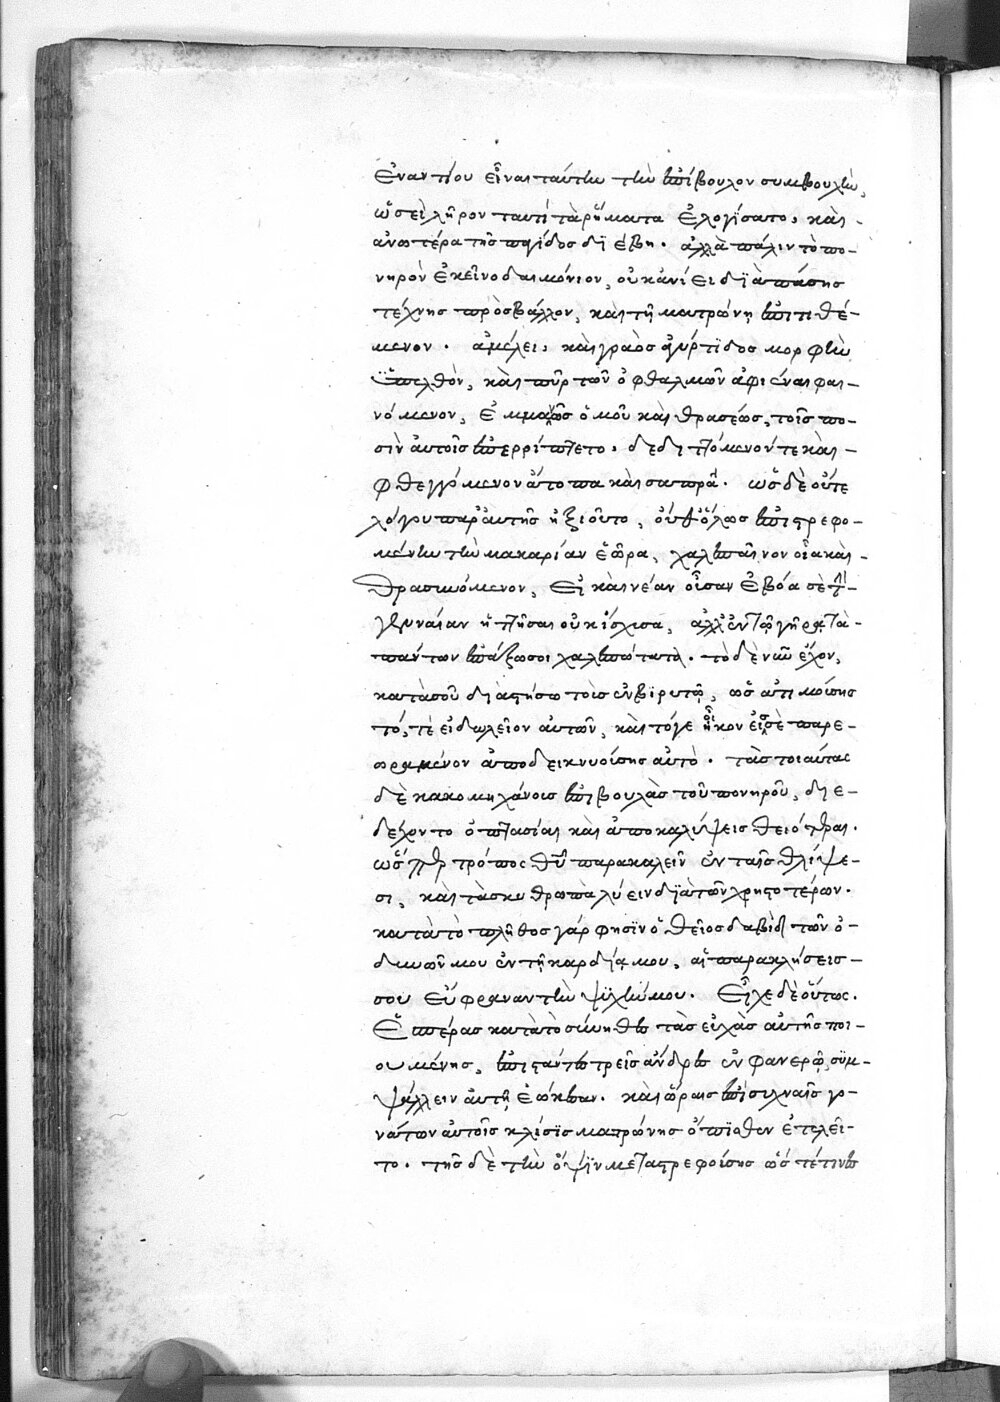 ἐναντίου εἶναι ταύτην τὴν ἐπίβουλον συμβουλὴν,
ὥστε λῆρον ταυτὶ τὰ ῥήματα ἐλογίσατο, καὶ
ἀνωτέρα τῆς παγίδος διέβη. ἀλλὰ πάλιν τὸ πο-
νηρὸν ἐκεῖνο δαιμόνιον, οὐκ ἀνίει διὰ πάσης
τέχνης προσβάλλον, καὶ τῇ ματρώνῃ ἐπιτιθέ-
μενον. ἀμέλει, καὶ γραὸς ἀγύρτιδος μορφὴν
ὑπελθὸν, καὶ πῦρ τῶν ὀφθαλμῶν ἀφιέναι φαι-
νόμενον, ἐμμανῶς ὁμοῦ καὶ θρασέως, τοῖς πο-
σὶν αὐτοῖς ὑπερρίπτετο, δεδιττόμενόν τε καὶ
φθεγγόμενον ἄτοπα καὶ σαπρά. ὡς δὲ οὔτε
λόγου παρ' αὐτῆς ἠξιοῦτο, οὔθ' ὅλως ἐπιστρεφο-
μένην τὴν μακαρίαν ἑώρα, χαλεπαῖνον οἷα καὶ
θρασυνόμενον, εἰ καὶ νέαν οὖσαν ἐβόα σὲ τὴν
γενναίαν ἡττῆσαι οὐκ ἴσχυσα, ἀλλ' ἐν τῷ γήρᾳ τὰ
πάντων ἐπάξω σοι χαλεπώτατα. τὸ δὲ νῦν ἔχον,
κατὰ σοῦ διαστήσω τοὺς ἐν βηρυτῷ, ὡς ἀτιμούσης
τό, τε εἰδωλεῖον αὐτῶν, καὶ τό γε ἧκον εἰς σὲ παρε-
ωραμένον ἀποδεικνυούσης αὐτό. τὰς τοιαύτας
δὲ κακομηχάνοις ἐπιβουλὰς τοῦ πονηροῦ, διε-
δέχοντο ὀπτασίαι καὶ ἀποκαλύψεις θειότεραι.
ὥσπερ τρόπος θεῦ παρακαλεῖν ἐν ταῖς θλίψε-
σι, καὶ τὰ σκυθρωπὰ λύειν διὰ τῶν χρηστοτέρων.
κατὰ τὸ πλῆθος γάρ φησιν ὁ θεῖος δαβὶδ τῶν ὀ-
δυνῶν μου ἐν τῇ καρδίᾳ μου, αἱ παρακλήσεις
σου εὔφραναν τὴν ψυχήν μου. εἶχε δὲ οὕτως.
ἑσπέρας κατὰ τὸ σύνηθες τὰς εὐχὰς αὐτῆς ποι-
ουμένης, ἐπιστάντες τρεῖς ἄνδρες ἐν φανερῷ, συμ-
ψάλλειν αὐτῇ ἐῴκεσαν. καὶ ὥραις ἐπὶ συχναῖς γο-
νάτων αὐτοῖς κλίσις ματρώνης ὄπισθεν ἐτελεῖ-
το. τῆς δὲ τὴν ὄψιν μεταστρεφούσης ὥς τέ τινες